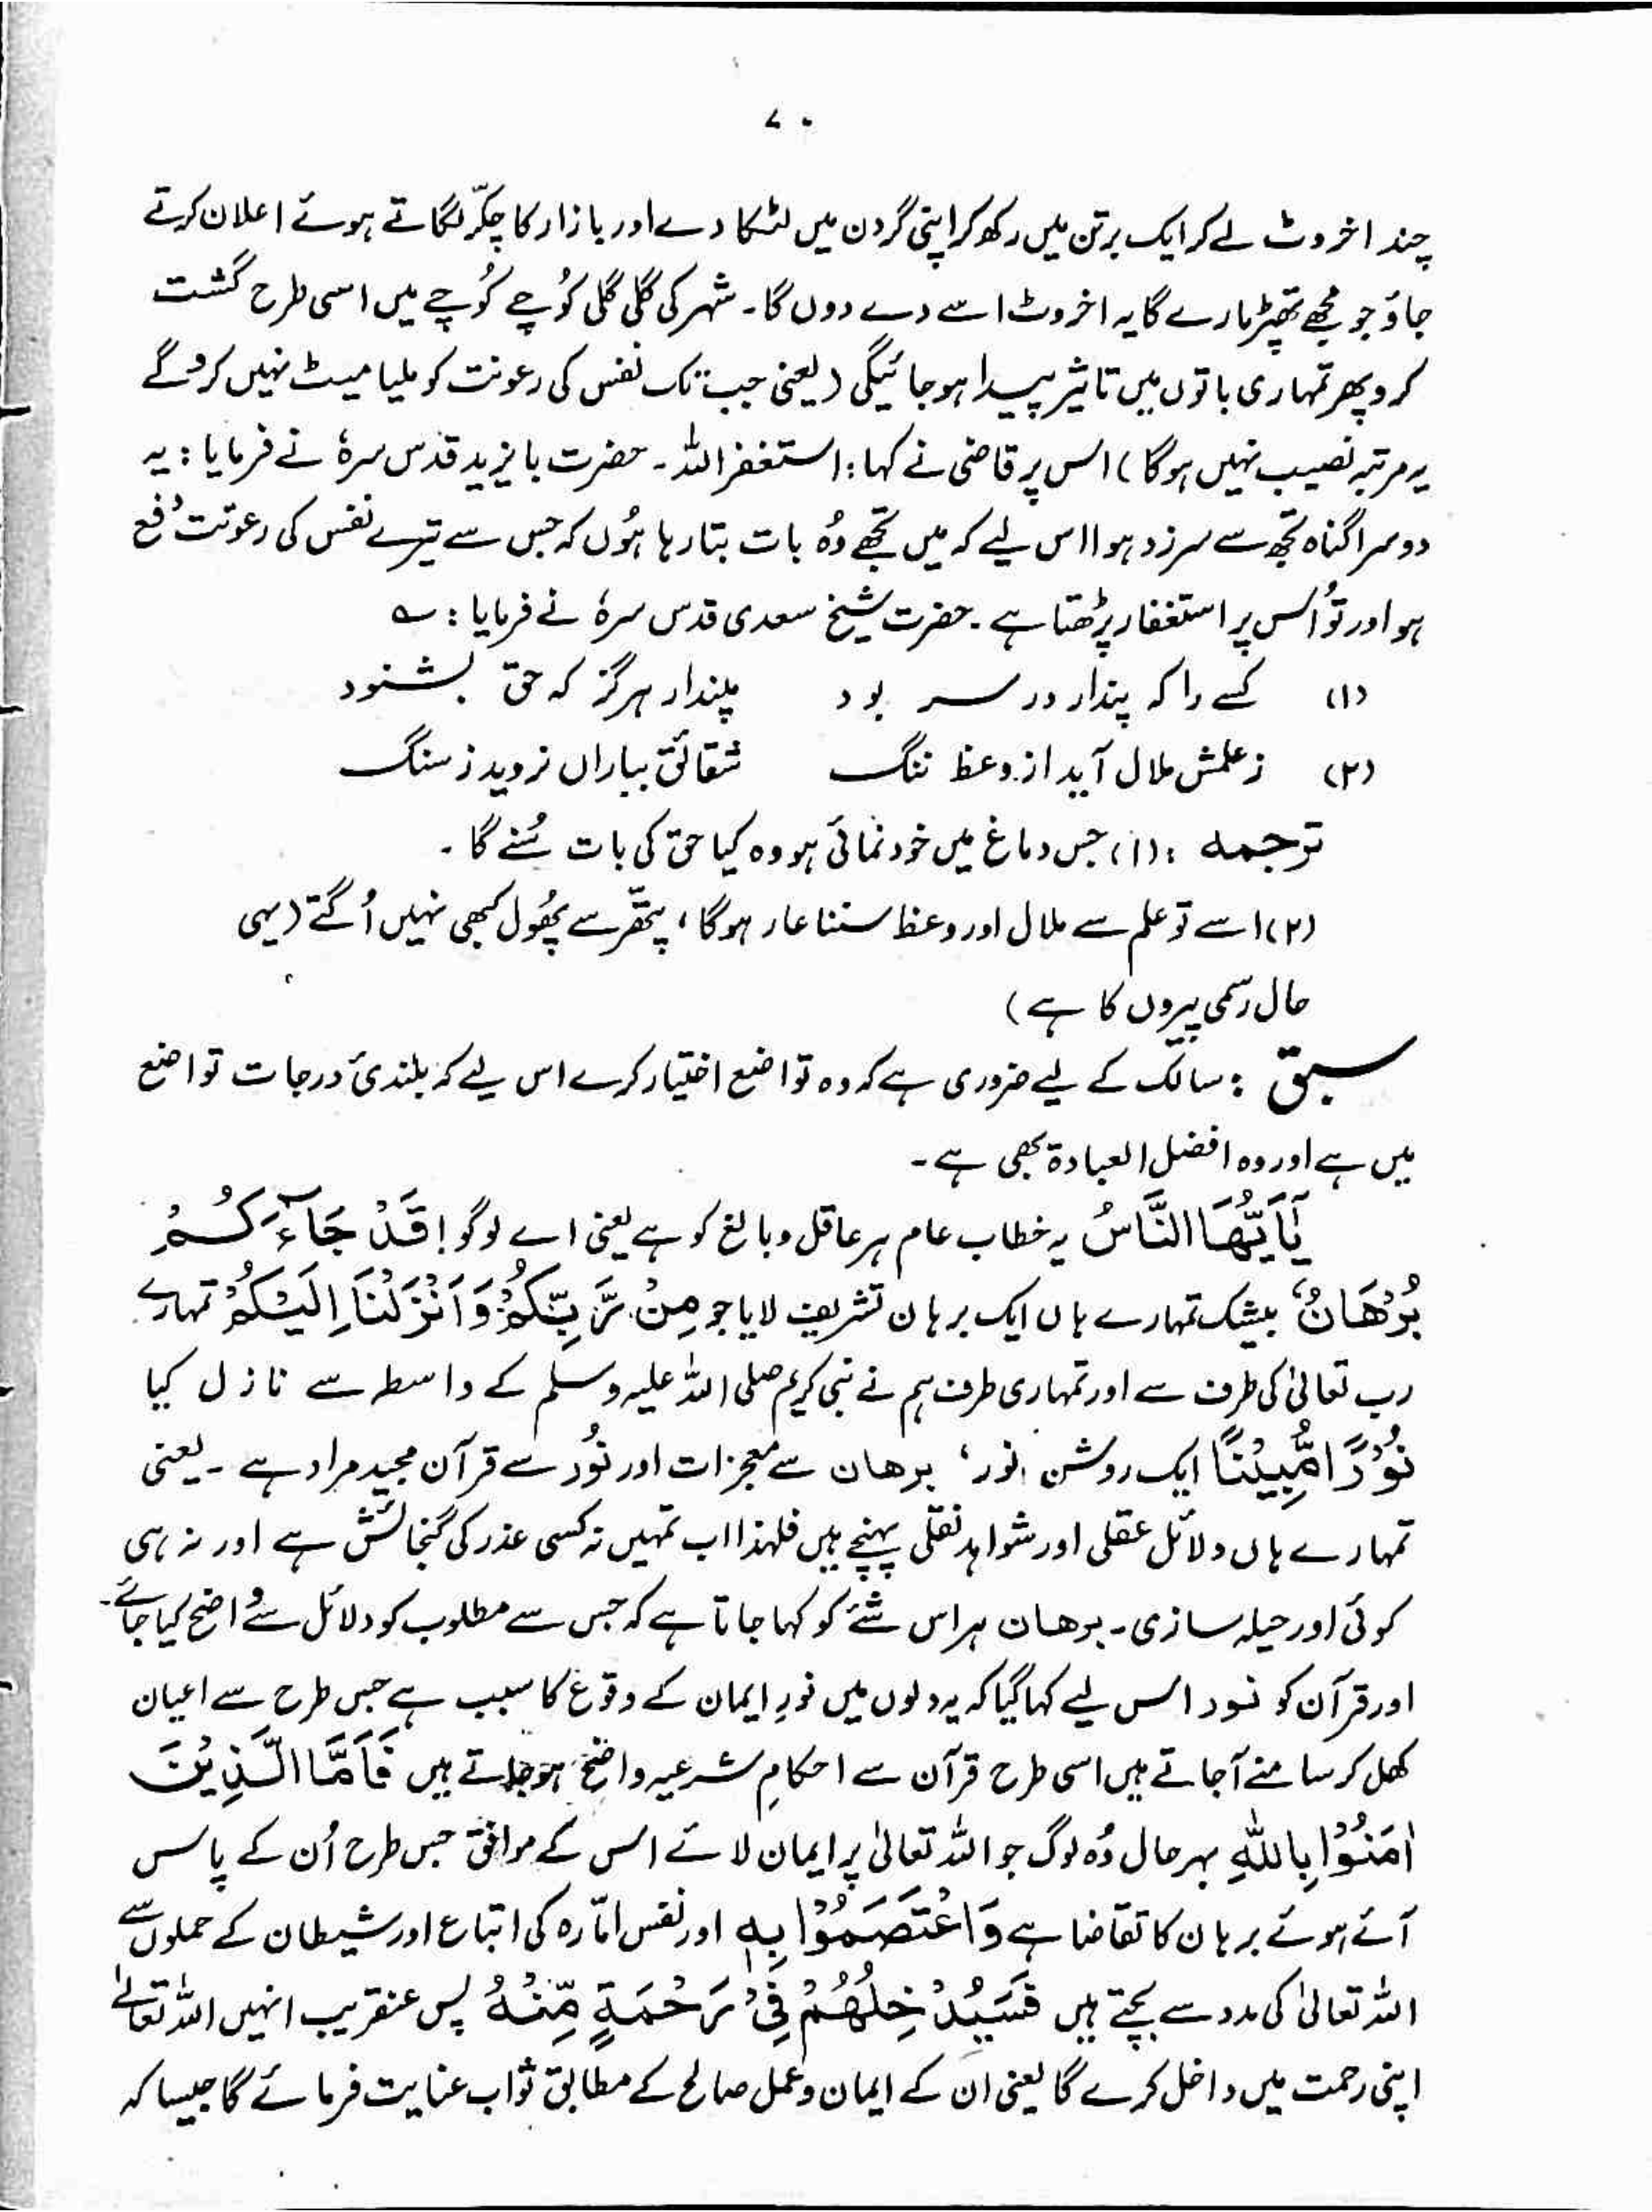 ۷۰
چند اخروٹ لے کر ایک برتن میں رکھ کر اپنی گردن میں لٹکا دے اور بازار کا چکّر لگاتے ہوئے اعلان کرتے
جاؤ جو مجھے تھپڑ مارے گا یہ اخروٹ اسے دے دوں گا۔ شہر کی گلی گلی کُوچے کُوچے میں اسی طرح گشت
کرو پھر تمہاری باتوں میں تاثیر پیدا ہو جائیگی (یعنی جب تک نفس کی رعونت کو ملیا میٹ نہیں کرو گے
یہ مرتبہ نصیب نہیں ہوگا) اس پر قاضی نے کہا: استغفراللہ۔ حضرت بایزید قدس سرہٗ نے فرمایا: یہ
دوسرا گناہ تجھ سے سرزد ہوا اس لیے کہ میں تجھے وُہ بات بتا رہا ہُوں کہ جس سے تیرے نفس کی رعونت دفع
ہو اور تُو اُس پر استغفار پڑھتا ہے۔ حضرت شیخ سعدی قدس سرہٗ نے فرمایا: ؎
(۱) کسے را کہ پندار در سر بود مپندار ہرگز کہ حق بشنود
(۲) ز علمش ملال آید از وعظ ننگ شقائق بباراں نروید ز سنگ
ترجمہ: (۱) جس دماغ میں خود نمائی ہو وہ کیا حق کی بات سُنے گا۔
(۲) اسے تو علم سے ملال اور وعظ سننا عار ہوگا، پتھّر سے پُھول کبھی نہیں اُگتے (یہی
حال رسمی پیروں کا ہے)
سبق: سالک کے لیے ضروری ہے کہ وہ تواضع اختیار کرے اس لیے کہ بلندیٔ درجات تواضع
میں ہے اور وہ افضل العبادۃ بھی ہے۔
یٰۤاَیُّهَا النَّاسُ یہ خطاب عام ہر عاقل و بالغ کو ہے یعنی اے لوگو! قَدْ جَآءَكُمْ
بُرْهَانٌ، بیشک تمہارے ہاں ایک برہان تشریف لایا جو مِنْ رَّبِّكُمْ وَاَنْزَلْنَاۤ اِلَیْكُمْ تمہارے
رب تعالیٰ کی طرف سے اور تمہاری طرف ہم نے نبی کریم صلی اللہ علیہ وسلم کے واسطہ سے نازل کیا
نُوْرًا مُّبِیْنًا ایک روشن نور، برهان سے معجزات اور نُور سے قرآن مجید مراد ہے۔ یعنی
تمہارے ہاں دلائل عقلی اور شواہد نقلی پہنچے ہیں فلہٰذا اب تمہیں نہ کسی عذر کی گنجائش ہے اور نہ ہی
کوئی اور حیلہ سازی۔ برهان ہر اس شئے کو کہا جاتا ہے کہ جس سے مطلوب کو دلائل سے واضح کیا جائے۔
اور قرآن کو نور اس لیے کہا گیا کہ یہ دلوں میں نورِ ایمان کے وقوع کا سبب ہے جس طرح سے اعیان
کھل کر سامنے آجاتے ہیں اسی طرح قرآن سے احکامِ شرعیہ واضح ہو جاتے ہیں فَاَمَّا الَّذِیْنَ
اٰمَنُوْا بِاللّٰهِ بہرحال وُہ لوگ جو اللہ تعالیٰ پر ایمان لائے اس کے موافق جس طرح اُن کے پاس
آئے ہوئے برہان کا تقاضا ہے وَاعْتَصَمُوْا بِهٖ اور نفس امّارہ کی اتباع اور شیطان کے حملوں سے
اللہ تعالیٰ کی مدد سے بچتے ہیں فَسَیُدْخِلُهُمْ فِیْ رَحْمَةٍ مِّنْهُ پس عنقریب انہیں اللہ تعالےٰ
اپنی رحمت میں داخل کرے گا یعنی ان کے ایمان و عمل صالح کے مطابق ثواب عنایت فرمائے گا جیسا کہ